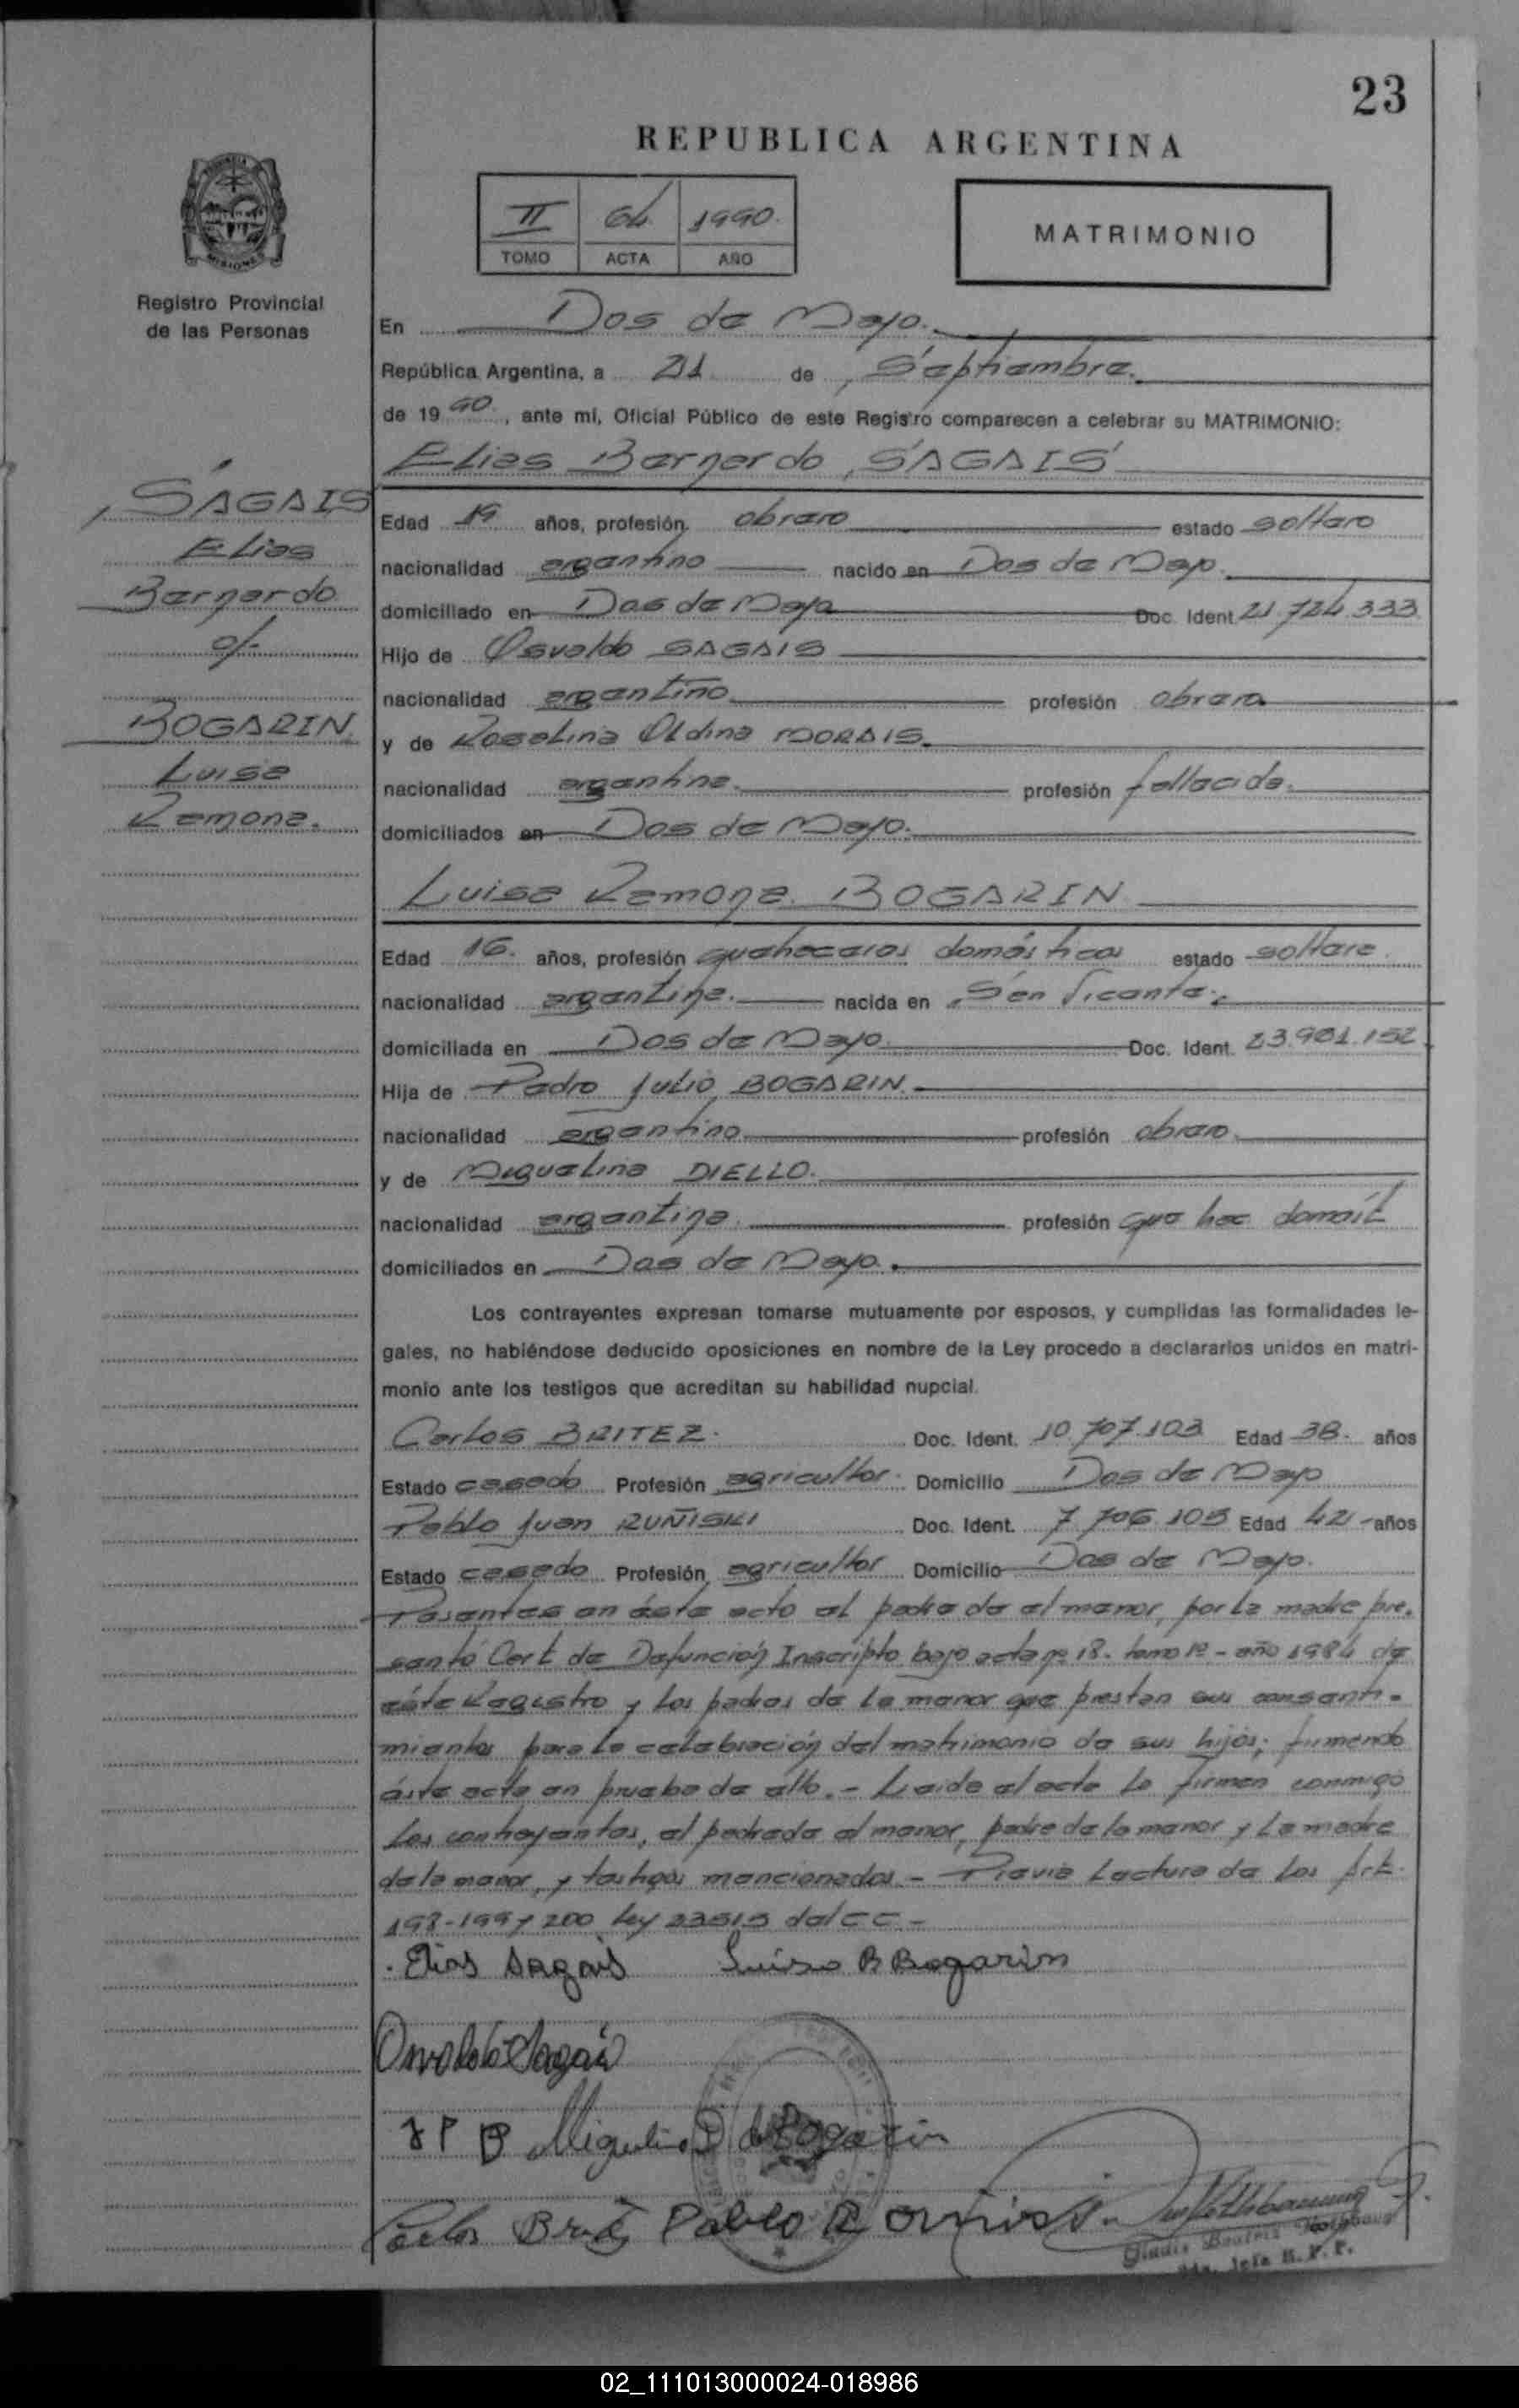 23
REPUBLICA ARGENTINA
II 64 1990
TOMO ACTA AÑO
MATRIMONIO
Registro Provincial
de las Personas
MISIONES
En Dos de Mayo.
República Argentina, a 21 de Septiembre.
de 1990, ante mí, Oficial Público de este Registro comparecen a celebrar su MATRIMONIO:
Elias Bernardo SAGAIS
SAGAIS
Elias
Bernardo
c/.
BOGARIN
Luisa
Ramona.
Edad 19 años, profesión obrero estado soltero
nacionalidad argentino nacido en Dos de Mayo.
domiciliado en Dos de Mayo Doc. Ident 21.724.333
Hijo de Osvaldo SAGAIS
nacionalidad argentino profesión obrero
y de Roselina Oldina MORAIS.
nacionalidad argentina. profesión fallecida.
domiciliados en Dos de Mayo.
Luisa Ramona BOGARIN
Edad 16. años, profesión quehaceres domésticos estado soltera.
nacionalidad argentina. nacida en San Vicente.
domiciliada en Dos de Mayo. Doc. Ident. 23.901.152
Hija de Pedro Julio BOGARIN.
nacionalidad argentino profesión obrero.
y de Miguelina DIELLO.
nacionalidad argentina. profesión que hac domést
domiciliados en Dos de Mayo.
Los contrayentes expresan tomarse mutuamente por esposos, y cumplidas las formalidades le-
gales, no habiéndose deducido oposiciones en nombre de la Ley procedo a declararlos unidos en matri-
monio ante los testigos que acreditan su habilidad nupcial.
Carlos BRITEZ. Doc. Ident. 10.707.103 Edad 38. años
Estado casado Profesión agricultor. Domicilio Dos de Mayo
Pablo Juan RUÑISKI Doc. Ident. 7.706.105 Edad 42 años
Estado casado Profesión agricultor Domicilio Dos de Mayo.
Presentes en éste acto el padre de el menor, por la madre pre.
sentó Cert de Defunción Inscripto bajo acta nº 18. tomo 1º - año 1984 de
éste Registro y los padres de la menor que prestan sus consenti-
mientos para la celebración del matrimonio de sus hijos; firmando
ésta acta en prueba de ello. - Leida el acta la firman conmigo
los contrayentes, el padre de el menor, padre de la menor y la madre
de la menor, y testigos mencionados. - Previa Lectura de los Art.
198-199 y 200 Ley 23515 del CC -
Elias Sagais Luisa R Bogarin
Osvaldo Sagais
J P B Miguelina D de Bogarin
Carlos Britez Pablo
Gladis Beatriz
Jefe R. P. P.
02_111013000024-018986